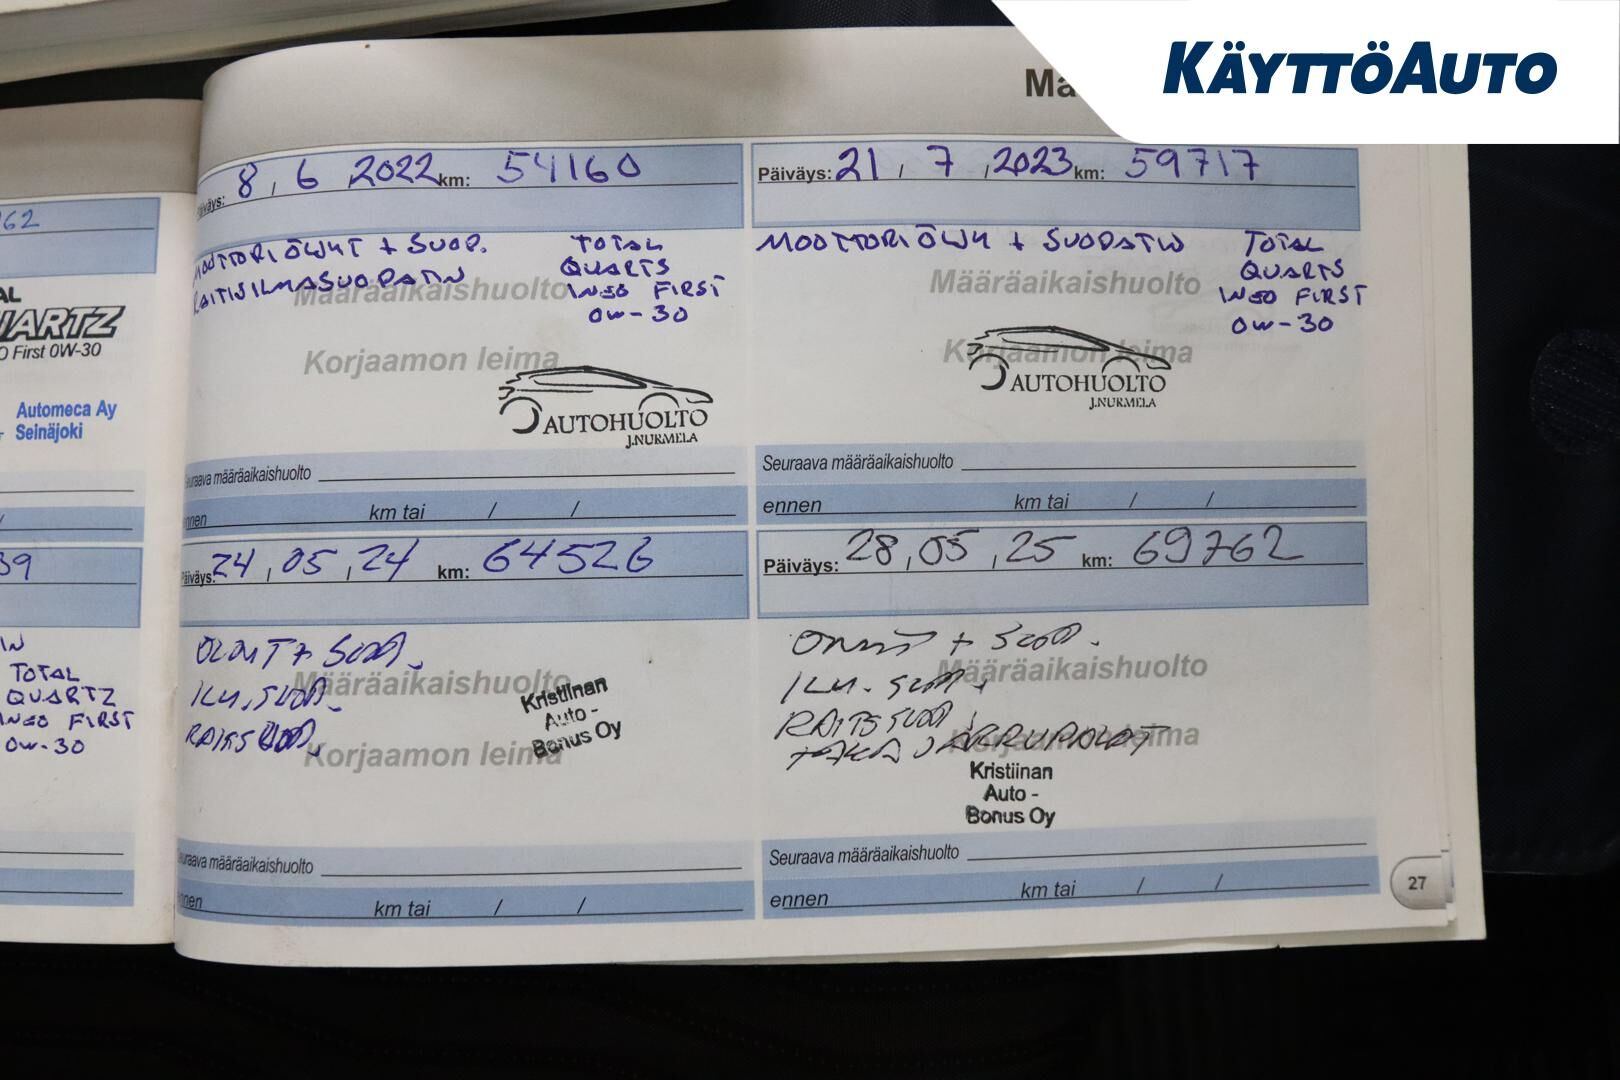 KÄYTTÖAUTO
Mä
62
AL
ARTZ
O First 0W-30
Automeca Ay
Seinäjoki
39
TOTAL
QUARTZ
INEO FIRST
0W-30
Päiväys: 8 / 6 2022 km: 54160
MOOTTORIÖLJYT + SUOD.
RAITISILMASUODATIN
TOTAL
QUARTS
INEO FIRST
0W-30
Määräaikaishuolto
Korjaamon leima
AUTOHUOLTO
J.NURMELA
Seuraava määräaikaishuolto
ennen km tai / /
Päiväys: 21 / 7 / 2023 km: 59717
MOOTTORIÖLJY + SUODATIN
TOTAL
QUARTS
INEO FIRST
0W-30
Määräaikaishuolto
Korjaamon leima
AUTOHUOLTO
J.NURMELA
Seuraava määräaikaishuolto
ennen km tai / /
Päiväys: 24 / 05 / 24 km: 64526
+ SUOD.
ILM. SUOD.
RAITIS SUOD.
Määräaikaishuolto
Korjaamon leima
Kristiinan
Auto -
Bonus Oy
Seuraava määräaikaishuolto
ennen km tai / /
Päiväys: 28 / 05 / 25 km: 69762
+ SUOD.
ILM. SUOD.
RAITIS SUOD.
TAKA JARRUPALAT
Määräaikaishuolto
Korjaamon leima
Kristiinan
Auto -
Bonus Oy
Seuraava määräaikaishuolto
ennen km tai / /
27